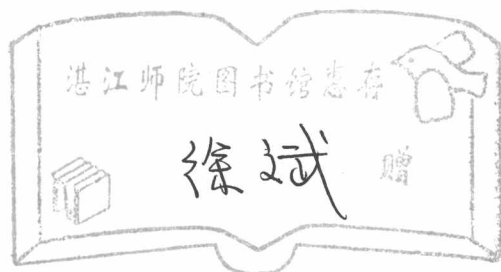 湛江师院图书馆惠存
徐斌 赠